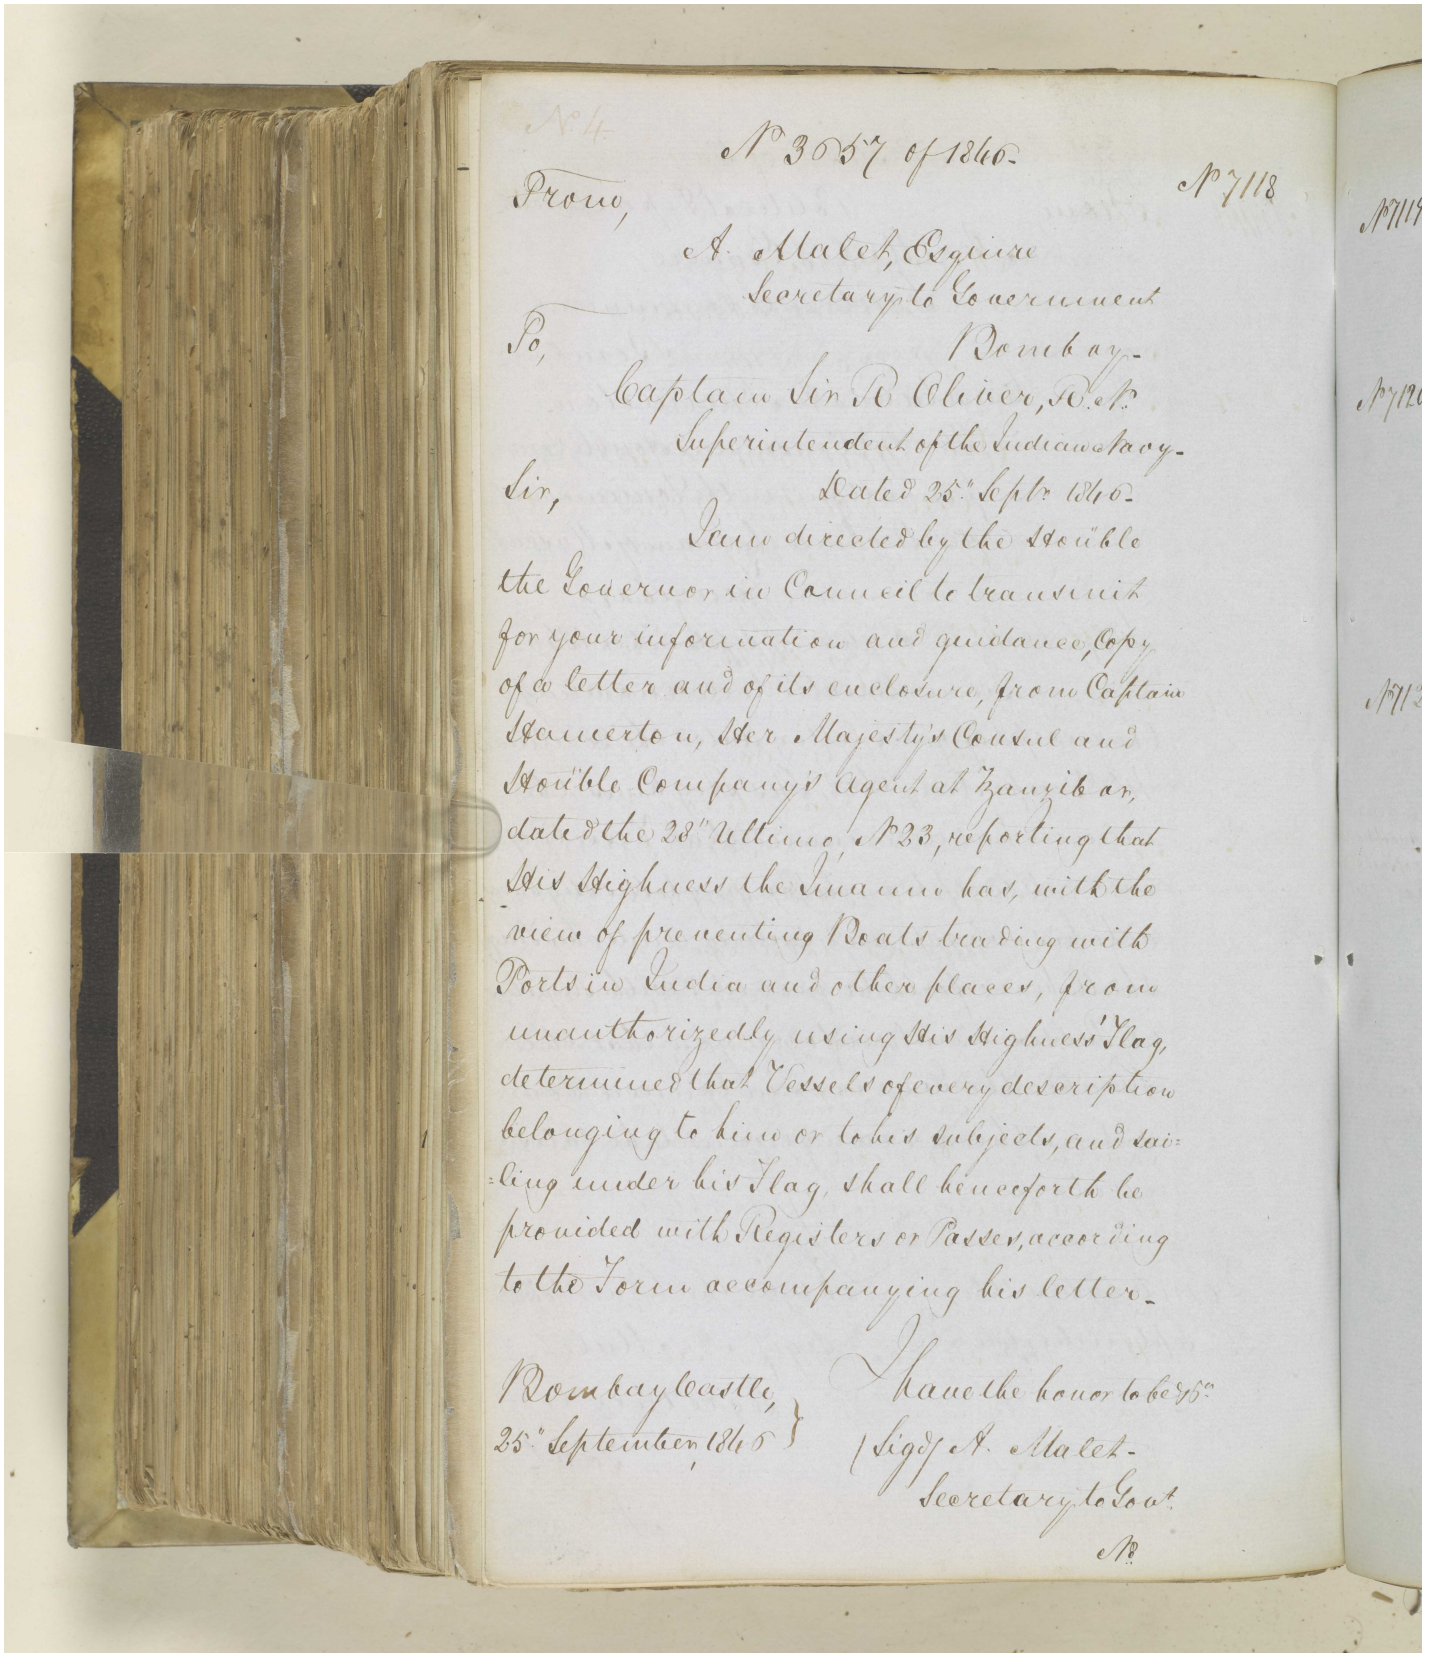 Nº 3657 of 1846-
Nº 7118
From,
A. Malet, Esquire
Secretary to Government
To,
Bombay-
Captain Sir R Oliver, R. N.
Superintendent of the Indian Navy-
Sir,
Dated 25" Septr. 1846-
I am directed by the Hon'ble
the Governor in Council to transmit
for your information and guidance, Copy
of a letter and of its enclosure, from Captain
Hamerton, Her Majesty's Consul and
Hon'ble Company's Agent at Zanzibar,
dated the 28" Ultimo, Nº 23, reporting that
His Highness the Imaum has, with the
view of preventing Boats trading with
Ports in India and other places, from
unauthorizedly using His Highness' Flag,
determined that Vessels of every description
belonging to him or to his subjects, and sai=
=ling under his Flag, shall henceforth be
provided with Registers or Passes, according
to the Form accompanying his letter-
I have the honor to be &ca.
Bombay Castle,
25" September, 1846
(Sigd) A. Malet-
Secretary to Govt.
No.
Nº 7119
Nº 7120
Nº 712